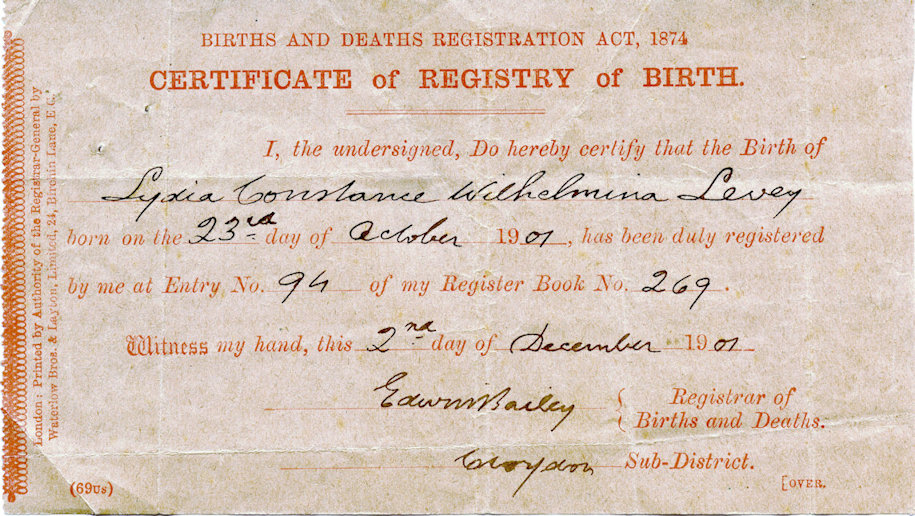 BIRTHS AND DEATHS REGISTRATION ACT, 1874
CERTIFICATE of REGISTRY of BIRTH.
I, the undersigned, Do hereby certify that the Birth of
Lydia Constance Wilhelmina Levey
born on the 23rd day of October 1901, has been duly registered
by me at Entry No. 94 of my Register Book No. 269.
Witness my hand, this 2nd day of December 1901
Edwin Bailey { Registrar of
Births and Deaths.
Croydon Sub-District.
(69us) [OVER.
London: Printed by Authority of the Registrar-General by
Waterlow Bros. & Layton, Limited, 24, Birchin Lane, E.C.